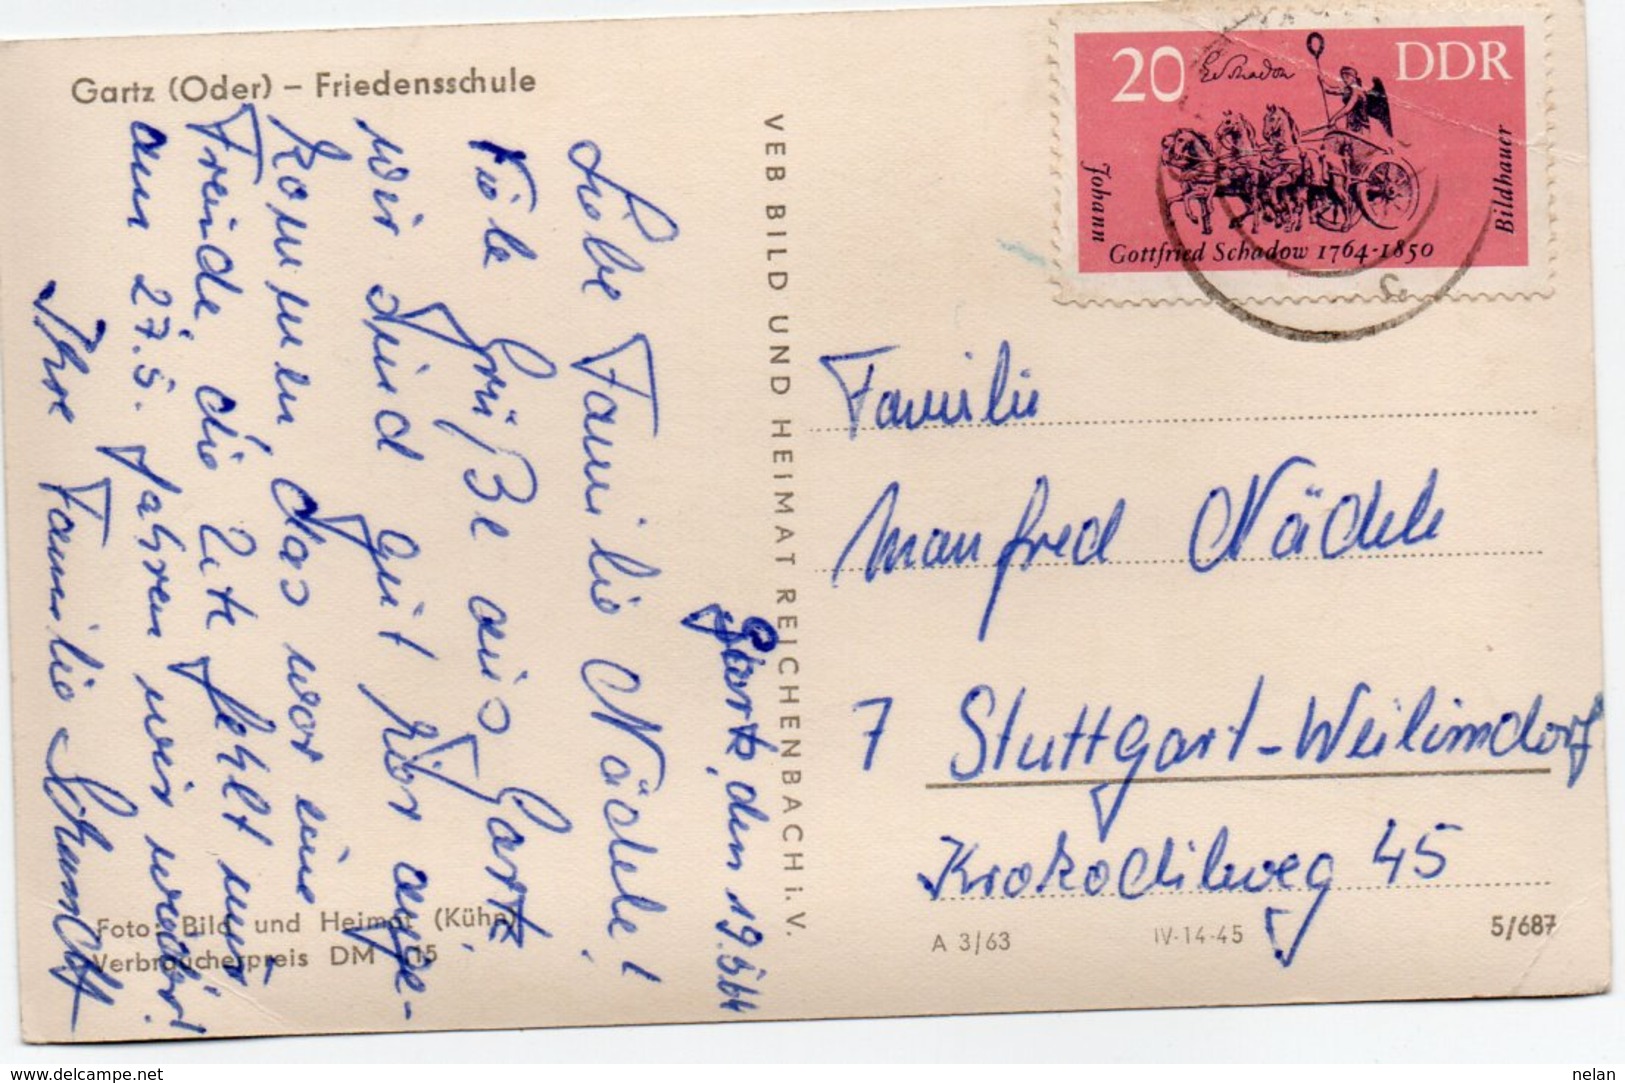 Gartz (Oder) – Friedensschule
Gartz, den 19.5.64
Liebe Familie Nädele!
Viele Grüße aus Gartz,
wir sind gut hier ange-
kommen, das war eine
Freude, die Ute fehlt nur
am 27.5. fahren wir wieder!
Ihre Familie
Foto: Bild und Heimat (Kühn)
Verbraucherpreis DM 0,15
VEB BILD UND HEIMAT REICHENBACH i. V.
20
DDR
Johann
Gottfried Schadow 1764-1850
Bildhauer
Familie
Manfred Nädele
7 Stuttgart-Weilimdorf
Krokodilweg 45
A 3/63
IV-14-45
5/687
www.delcampe.net
nelan